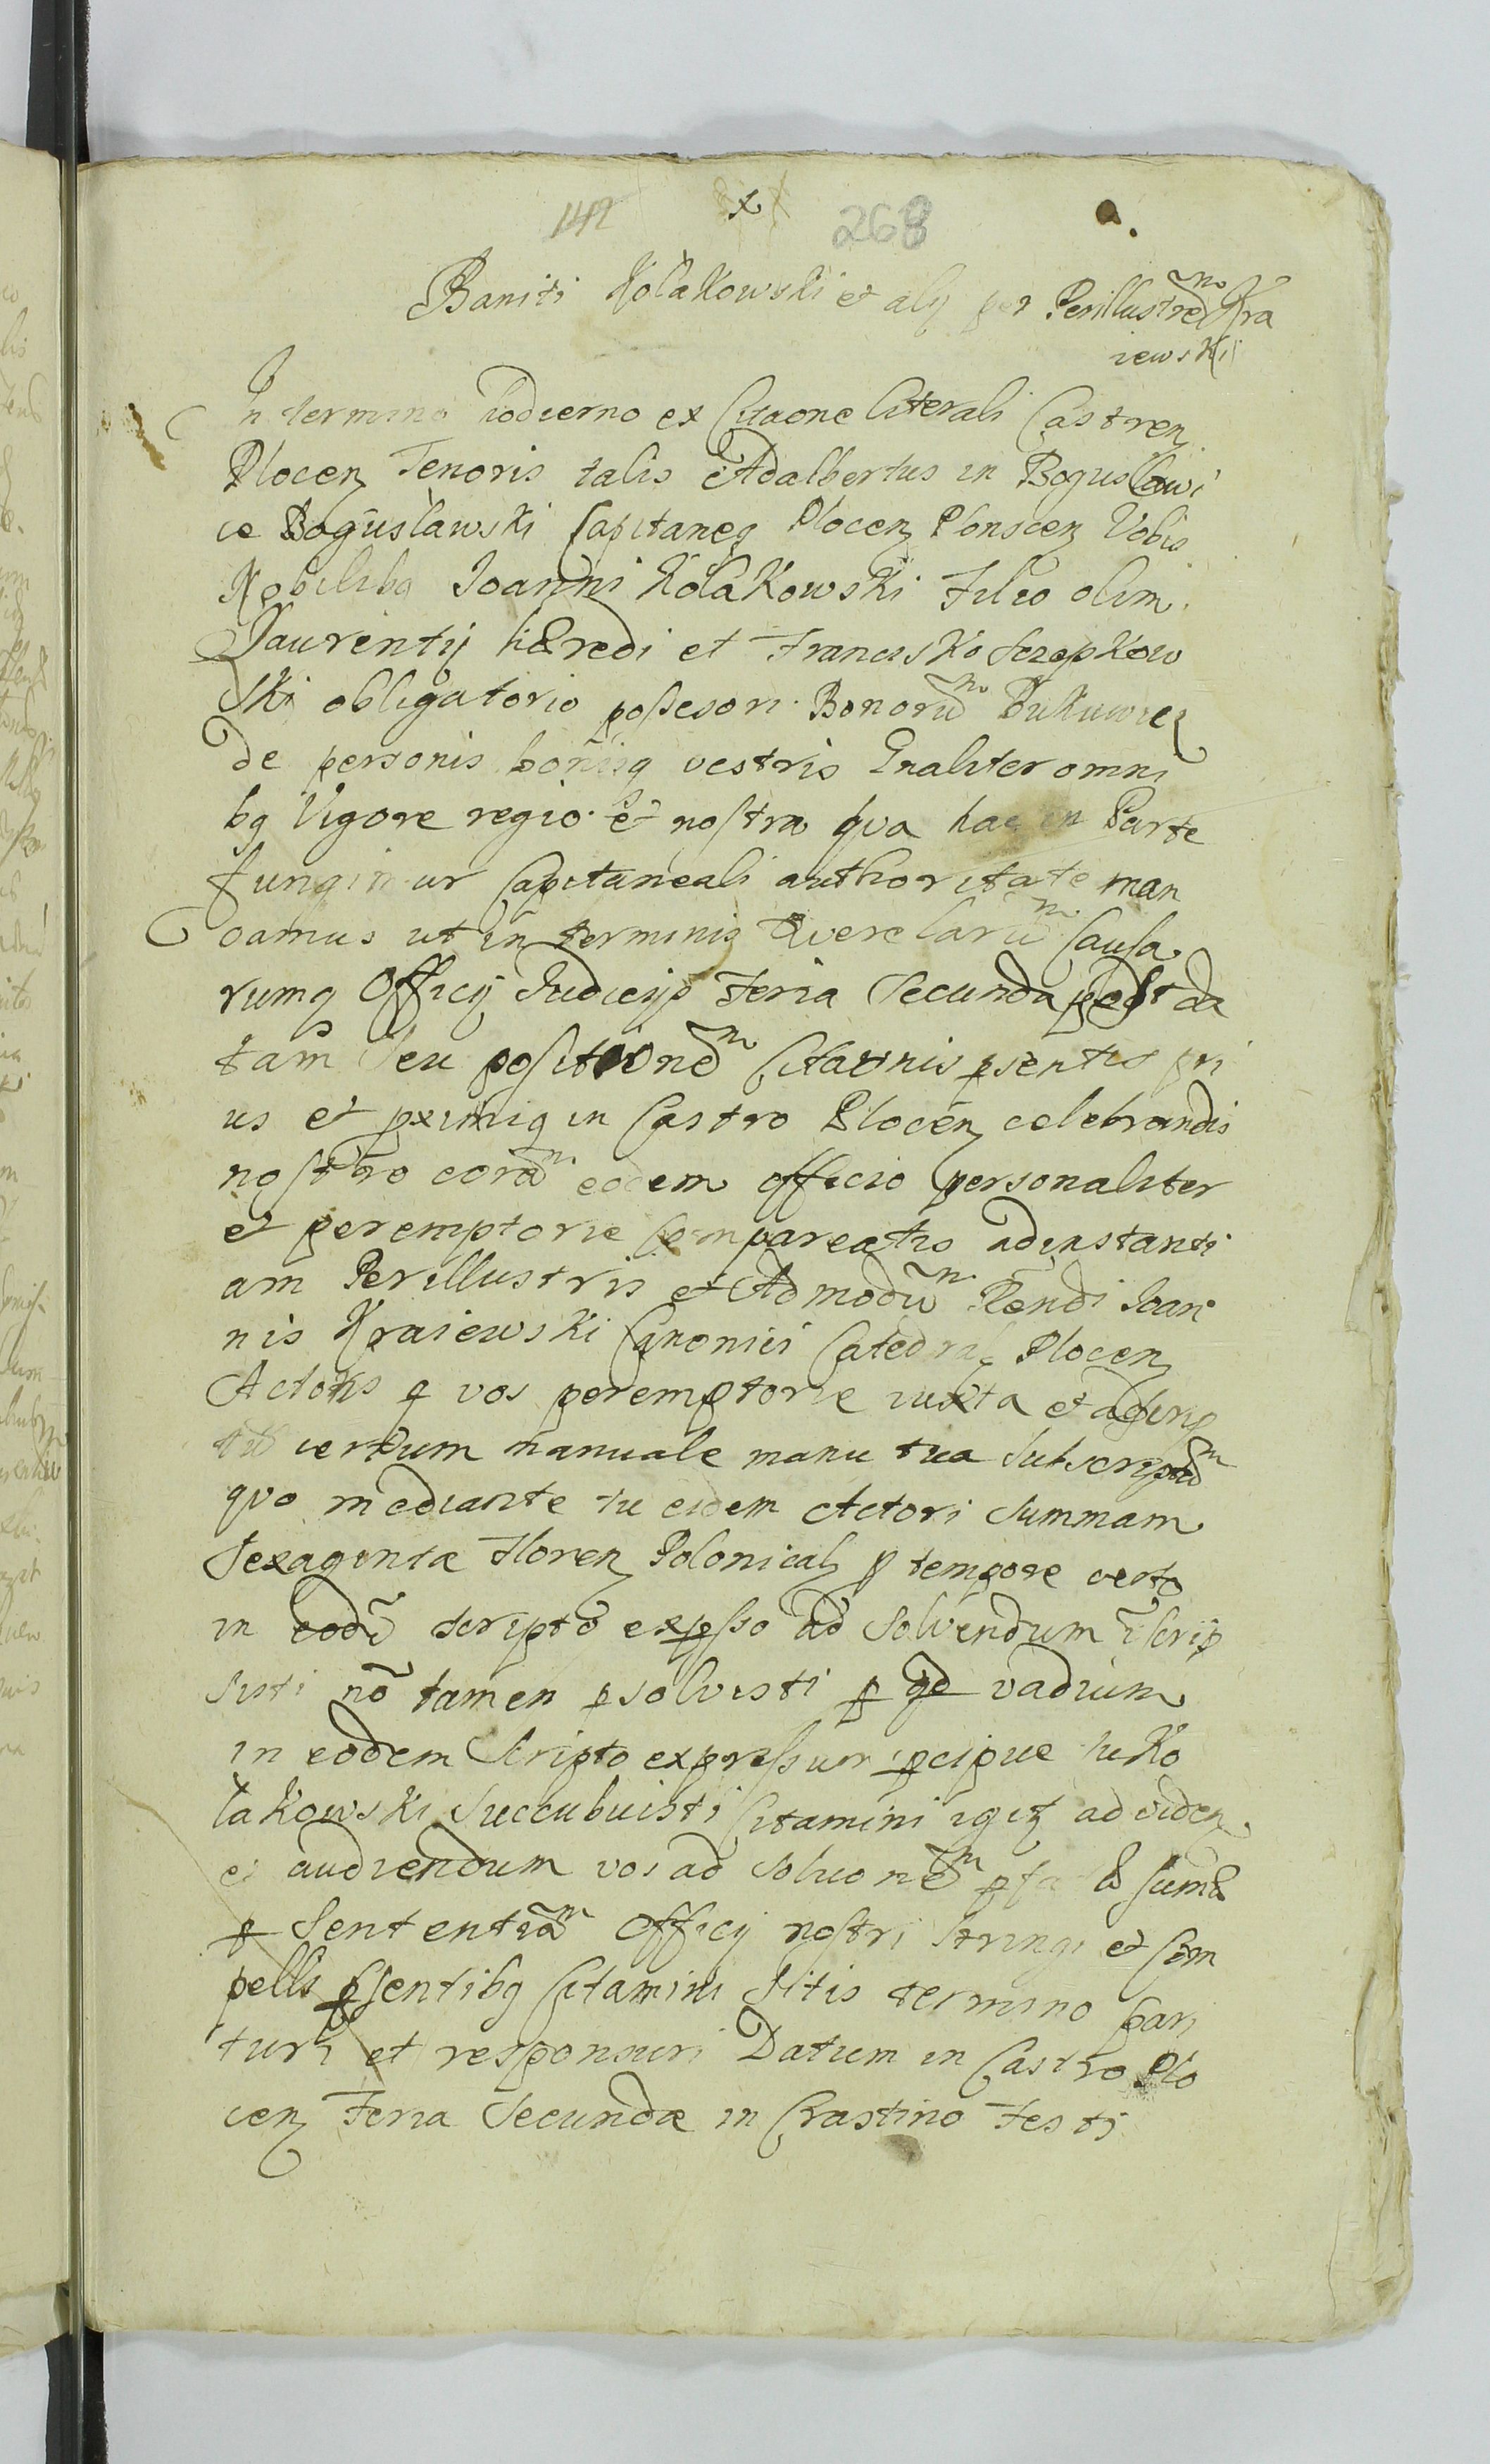 142 x 268 a.
Baniti Kołakowski et alij per Perillustrem Kra
iewskii
In termino hodierno ex Citaone literali Castren
Plocen Tenoris talis Adalbertus in Bogusławi
ce Bogusławski Capitaneq Plocen Plonscen Vobis
Nobilibq Joanni Kołakowski Filio olim
Laurentij hæredi et Francisko Szczepkow
ski obligatorio possesori Bonorum
de personis bonisq vestris Gnaliter omni
bq Vigore regio et nostra qva hac in Parte
fungimur Capitaneali authoritate man
damus ut in terminis Qverelarum Causa
rumq Officij Judicijs Feria Secunda post da
tam seu positionem Citaonis psentis pri
us et pximiq in Castro Plocen celebrandis
nostro coram eodem officio personaliter
et peremptorie Compareatis ad instanti
am Perillustris et Admodum Rendi Joan
nis Kraiewski Canonici Catedral Plocen
Actoris q vos peremptorie iuxta et
certum manuale manu tua Subscriptum
qvo mediante tu eidem Actori Summam
Sexaginta Floren Polonical p tempore certo
in eode scripto expsso ad Solvendum iscrip
sisti no tamen psolvisti p qd vadium
in eodem Scripto expressum pcipue tu Ko
łakowski Succubuisti Citamini igit ad viden
et audiendum vos ad Soluonem Sumæ
p Sententiam Officij nostri Stringi et Com
pelli psentibq Citamini Sitis termino pari
turi et responsuri Datum in Castro Plo
cen Feria Secunda in Crastino Festi